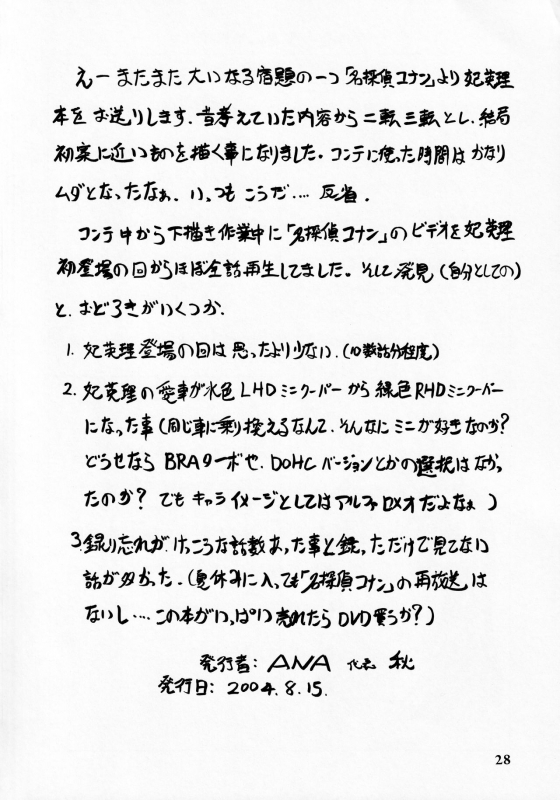 えー またまた 大いなる宿題の一つ「名探偵コナン」より 妃英理
本を お送りします. 昔考えていた内容から 二転三転とし. 結局
初案に近いものを描く事になりました. コンテに使った時間は かなり
ムダとなったなぁ. いっつも こうだ…. 反省.
コンテ中から下描き作業中に「名探偵コナン」のビデオを妃英理
初登場の回からほぼ全話再生してました. そして発見 (自分としての)
と. おどろきがいくつか.
1. 妃英理登場の回は 思ったより少ない. (10数話分程度)
2. 妃英理の愛車が水色LHDミニクーパーから緑色RHDミニクーパー
になった事 (同じ車に乗り換えるなんて. そんなにミニが好きなのか?
どうせなら BRAターボや. DOHCバージョンとかの選択はなかっ
たのか? でも キャライメージとしてはアルファロメオだよなぁ )
3. 録り忘れが. けっこうな話数あった事と録っただけで見てない
話が多かった. (夏休みに入っても「名探偵コナン」の再放送は
ないし…. この本がいっぱい売れたら DVD買うか?)
発行者: ANA 代表 秋
発行日: 2004.8.15.
28